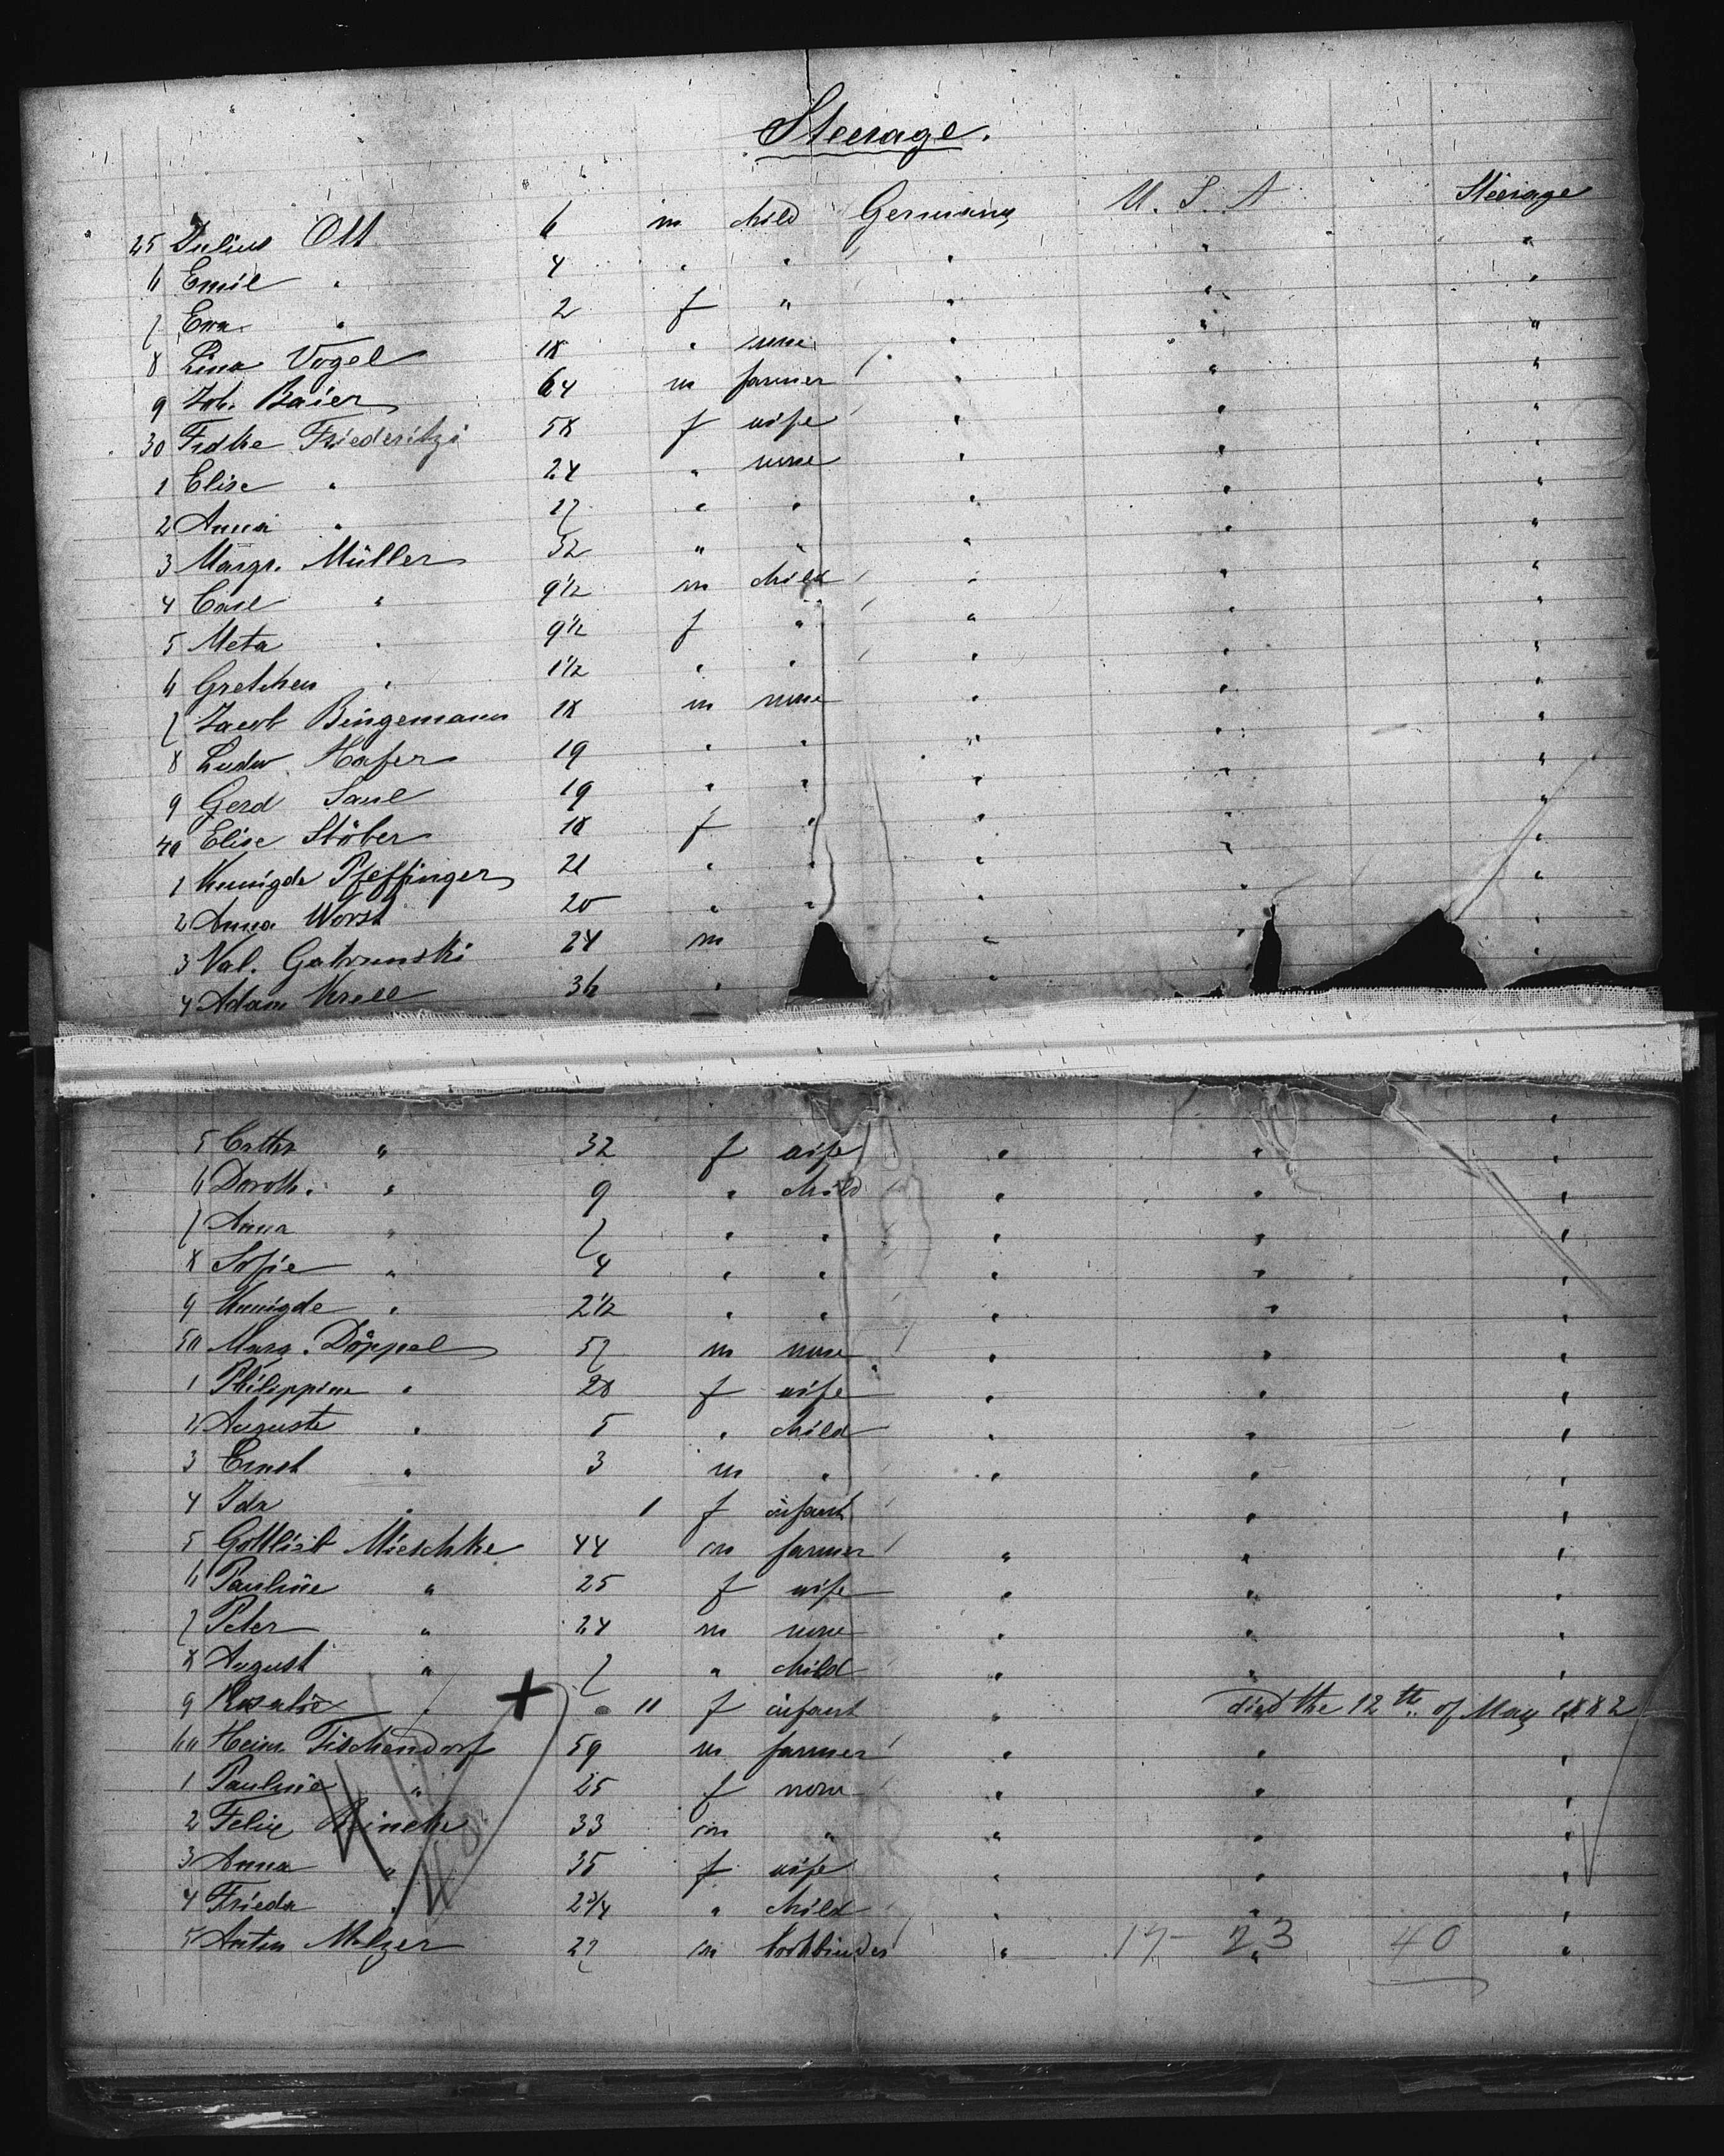 Steerage.
25 Julius Ott 6 m child Germany U. S. A Steerage
6 Emil " 4 " " " " "
7 Eva " 2 f " " " "
8 Lina Vogel 18 " none " " "
9 Joh. Baier 64 m farmer " " "
30 Fidke Friederitzi 58 f wife " " "
1 Elise " 24 " none " " "
2 Anna " 17 " " " " "
3 Margr. Müller 32 " " " " "
4 Carl " 9½ m child " " "
5 Meta " 9½ f " " " "
6 Gretchen " 1½ " " " " "
7 Jacob Bingemann 18 m none " " "
8 Ludw. Hafer 19 " " " " "
9 Gerd Saul 19 " " " " "
40 Elise Stöber 18 f " " " "
1 Kunigde Pfeffinger 21 " " " " "
2 Anna Worst 20 " " " " "
3 Val. 24 m " " "
4 Adam Krell 36 " " " "
5 Cathr " 32 f wife " " "
6 Doroth. " 9 " child " " "
7 Anna " 7 " " " " "
8 Sofie " 4 " " " " "
9 Kunigde " 2½ " " " " "
50 Marg. Döppel 57 m none " " "
1 Philippine " 28 f wife " " "
2 Auguste " 5 " child " " "
3 Ernst " 3 m " " " "
4 Ida " 1 f infant " "
5 Gottlieb Mieschke 44 m farmer " " "
6 Pauline " 25 f wife " " "
7 Peter " 24 m none " " "
8 August " 7 " child " " "
9 Rosalie " + 11 f infant " died the 12th of May 1882
60 Heinr. Tischendorf 59 m farmer " " "
1 Pauline " 25 f none " " "
2 Felix Reincke 33 m " " " "
3 Anna " 35 f wife " " "
4 Frieda " 2¾ " child " " "
5 Anton Melzer 27 m bookbinder " 17- 23 " 40 "